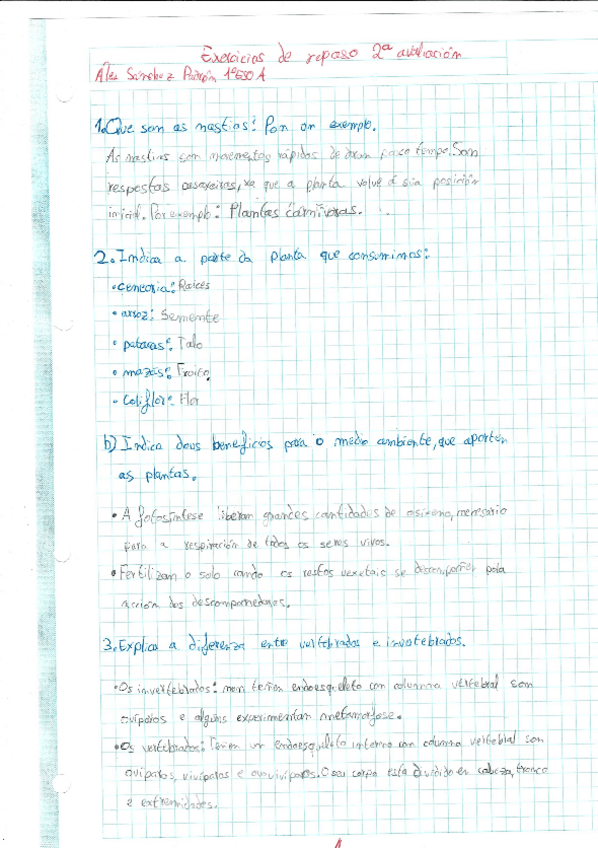 Exercicios de repaso 2ª avaliación
Álex Sánchez 1º ESO A
1.Que son as nastias? Pon un exemplo.
As nastias son movementos rápidos de duran pouco tempo. Son
respostas pasaxeiras, xa que a planta volve á súa posición
inicial. Por exemplo: Plantas carnívoras.
2. Indica a parte da planta que consumimos:
• cenoria: Raíces
• arroz: Semente
• patacas: Talo
• mazás: Froito
- Coliflor: Flor
b) Indica dous beneficios para o medio ambiente, que aportan
as plantas.
• A fotosíntese liberan grandes cantidades de osíxeno, necesario
para a respiración de todos os seres vivos.
• Fertilizan o solo cando os restos vexetais se descompoñer pola
acción dos descompoñedores.
3. Explica a diferenza entre vertebrados e invertebrados.
• Os invertebrados: non teñen endoesqueleto con columna vertebral son
ovíparos e algúns experimentan metamorfose.
• Os vertebrados: Teñen un endoesqueleto interno con columna vertebral son
ovíparos, vivíparos e ovovivíparos. O seu corpo está dividido en cabeza, tronco
e extremidades.
1